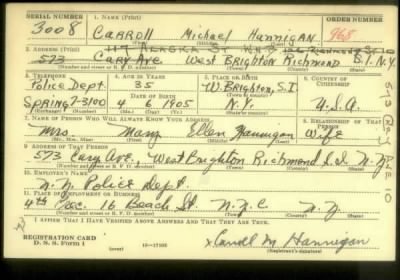 SERIAL NUMBER 1. NAME (Print) ORDER NUMBER
3008 CARROLL Michael Hannigan 968
2. ADDRESS (Print) 117 ALASKA St W.N.B.
573 Cary Ave. West Brighton Richmond S.I. N.Y.
(Number and street or R. F. D. number) (Town) (County) (State)
3. TELEPHONE 4. AGE IN YEARS 5. PLACE OF BIRTH 6. COUNTRY OF CITIZENSHIP
Police Dept. 35 W. Brighton, S.I.
DATE OF BIRTH
SPring 7-3100 4 6 1905 N.Y. U.S.A.
(Exchange) (Number) (Mo.) (Day) (Yr.) (State or country)
7. NAME OF PERSON WHO WILL ALWAYS KNOW YOUR ADDRESS 8. RELATIONSHIP OF THAT PERSON
Mrs. Mary Ellen Hannigan Wife
(Mr., Mrs., Miss) (First) (Middle) (Last)
9. ADDRESS OF THAT PERSON
573 Cary Ave. West Brighton Richmond S.I. N.Y.
(Number and street or R. F. D. number) (Town) (County) (State)
10. EMPLOYER'S NAME
N.Y. Police Dept.
11. PLACE OF EMPLOYMENT OR BUSINESS
4th Prec. 16 Beach St. N.Y.C N.Y.
(Number and street or R. F. D. number) (Town) (County) (State)
I AFFIRM THAT I HAVE VERIFIED ABOVE ANSWERS AND THAT THEY ARE TRUE.
REGISTRATION CARD
D. S. S. Form 1 (over) 16-17105
x Carroll M Hannigan
(Registrant's signature)